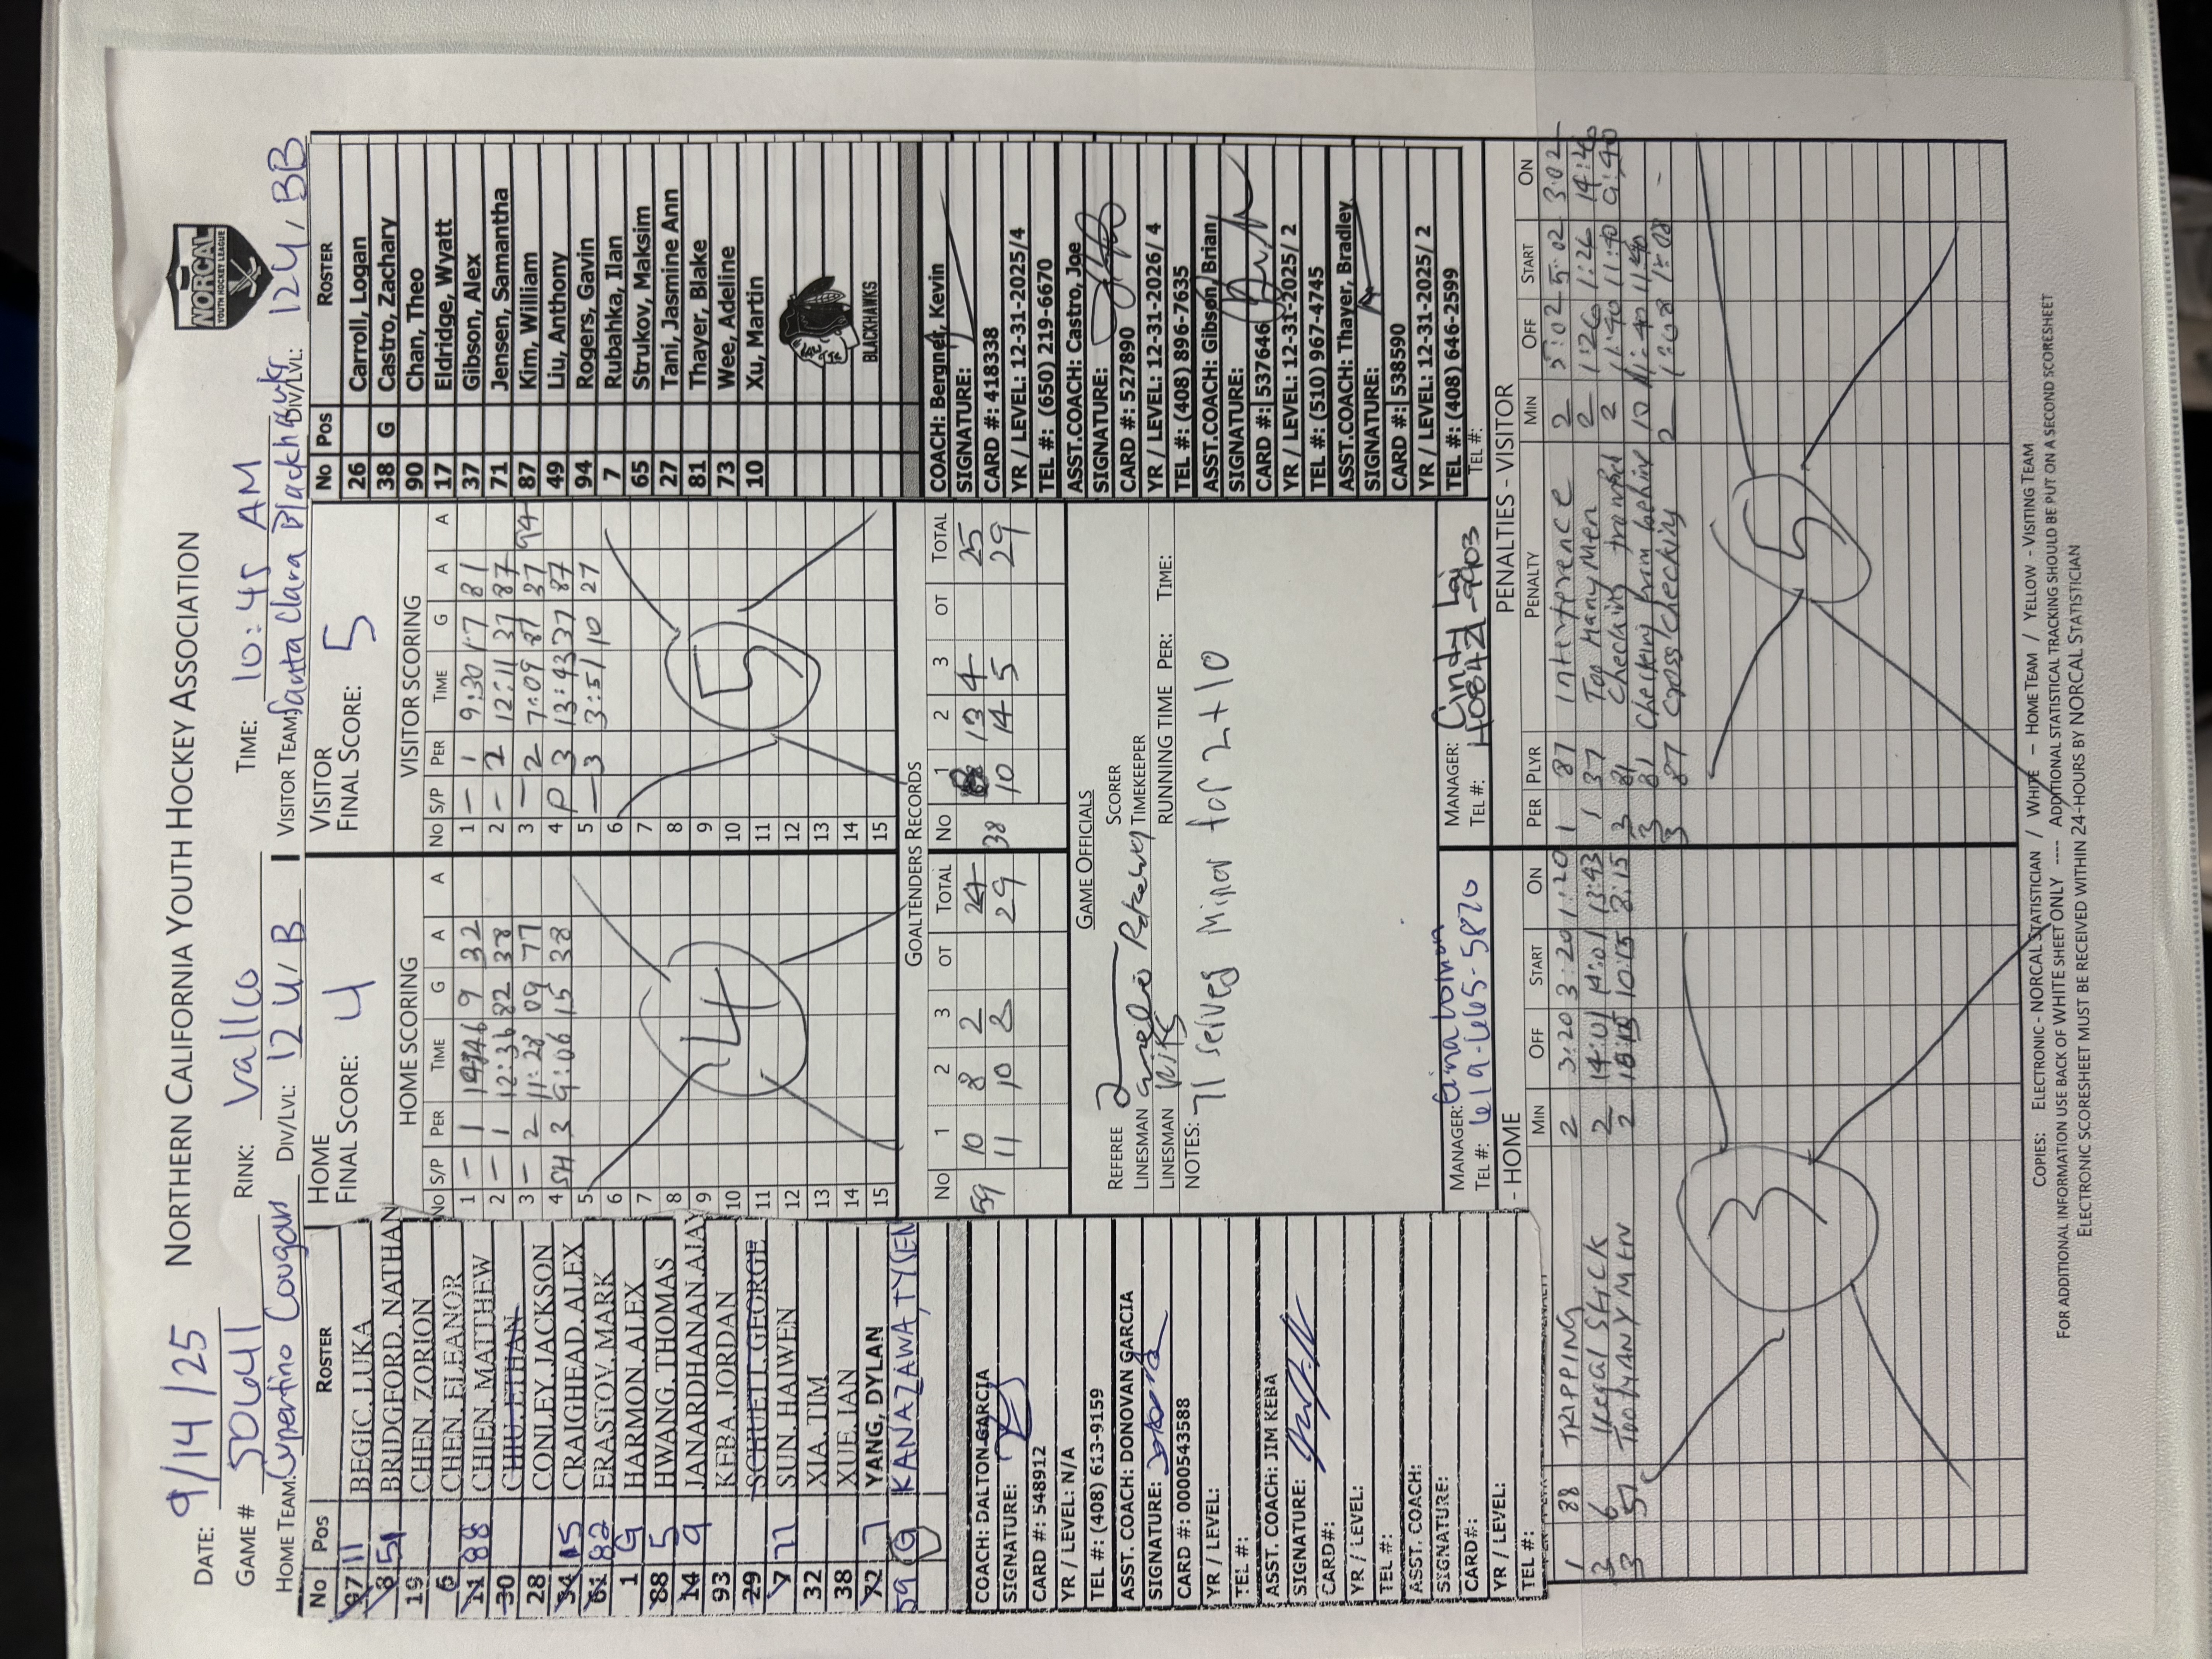 NORTHERN CALIFORNIA YOUTH HOCKEY ASSOCIATION
NORCAL
YOUTH HOCKEY LEAGUE
DATE: 9/14/25
GAME # 50641 RINK: Vallco TIME: 10:45 AM
HOME TEAM: Cupertino Cougars DIV/LVL: 12U/B VISITOR TEAM: Santa Clara Blackhawks DIV/LVL: 12U, BB
No Pos ROSTER
97 11 BEGIC, LUKA
8 51 BRIDGFORD, NATHAN
19 CHEN, ZORION
6 CHEN, ELEANOR
11 88 CHIEN, MATTHEW
30 CHIU, ETHAN
28 CONLEY, JACKSON
34 15 CRAIGHEAD, ALEX
61 82 ERASTOV, MARK
1 G HARMON, ALEX
88 5 HWANG, THOMAS
14 9 JANARDHANAN, AJAY
93 KEBA, JORDAN
29 SCHUETT, GEORGE
7 77 SUN, HAIWEN
32 XIA, TIM
38 XUE, IAN
72 7 YANG, DYLAN
59 G KANAZAWA, TYSEN
HOME
FINAL SCORE: 4
HOME SCORING
No S/P PER TIME G A A
1 – 1 9 32
2 – 1 12:36 82 38
3 – 2 11:28 09 77
4 SH 3 9:06 15 38
5
6
7
8
9
10
11
12
13
14
15
4
VISITOR
FINAL SCORE: 5
VISITOR SCORING
No S/P PER TIME G A A
1 – 1 9:30 17 81
2 – 2 12:11 37 87
3 – 2 7:09 87 37 94
4 P 3 13:43 37 87
5 – 3 3:51 10 27
6
7
8
9
10
11
12
13
14
15
5
No Pos ROSTER
26 Carroll, Logan
38 G Castro, Zachary
90 Chan, Theo
17 Eldridge, Wyatt
37 Gibson, Alex
71 Jensen, Samantha
87 Kim, William
49 Liu, Anthony
94 Rogers, Gavin
7 Rubahka, Ilan
65 Strukov, Maksim
27 Tani, Jasmine Ann
81 Thayer, Blake
73 Wee, Adeline
10 Xu, Martin
BLACKHAWKS
COACH: DALTON GARCIA
SIGNATURE:
CARD #: 548912
YR / LEVEL: N/A
TEL #: (408) 613-9159
ASST. COACH: DONOVAN GARCIA
SIGNATURE:
CARD #: 0000543588
YR / LEVEL:
TEL #:
ASST. COACH: JIM KEBA
SIGNATURE:
CARD#:
YR / LEVEL:
TEL #:
ASST. COACH:
SIGNATURE:
CARD#:
YR / LEVEL:
TEL #:
GOALTENDERS RECORDS
No 1 2 3 OT TOTAL No 1 2 3 OT TOTAL
59 10 8 2 38 13 4 25
11 10 8 29 10 14 5 29
GAME OFFICIALS
REFEREE SCORER
LINESMAN TIMEKEEPER
LINESMAN RUNNING TIME PER: TIME:
NOTES: 71 serves Minor for 2+10
MANAGER: TEL #: 619-665-5870
MANAGER: Cindy Lai
TEL #:
COACH: Bergner, Kevin
SIGNATURE:
CARD #: 418338
YR / LEVEL: 12-31-2025/4
TEL #: (650) 219-6670
ASST.COACH: Castro, Joe
SIGNATURE:
CARD #: 527890
YR / LEVEL: 12-31-2026/ 4
TEL #: (408) 896-7635
ASST.COACH: Gibson, Brian
SIGNATURE:
CARD #: 537646
YR / LEVEL: 12-31-2025/ 2
TEL #: (510) 967-4745
ASST.COACH: Thayer, Bradley
SIGNATURE:
CARD #: 538590
YR / LEVEL: 12-31-2025/ 2
TEL #: (408) 646-2599
TEL #:
- HOME
MIN OFF START ON
1 88 TRIPPING 2 3:20 3:20 1:20
3 6 Illegal Stick 2 14:01 14:01 13:43
3 51 Too MANY MEN 2 10:15 8:15
3
PENALTIES - VISITOR
PER PLYR PENALTY MIN OFF START ON
1 87 Interference 2 5:02 5:02 3:02
1 37 Too Many Men 2 1:26 1:26 14:46
3 81 Checking 2 11:40 11:40 9:40
3 81 Checking from behind 10 11:40 11:40
3 87 Cross checking 2 1:08 1:08 –
5
COPIES: ELECTRONIC - NORCAL STATISTICIAN / WHITE – HOME TEAM / YELLOW - VISITING TEAM
FOR ADDITIONAL INFORMATION USE BACK OF WHITE SHEET ONLY ---- ADDITIONAL STATISTICAL TRACKING SHOULD BE PUT ON A SECOND SCORESHEET
ELECTRONIC SCORESHEET MUST BE RECEIVED WITHIN 24-HOURS BY NORCAL STATISTICIAN